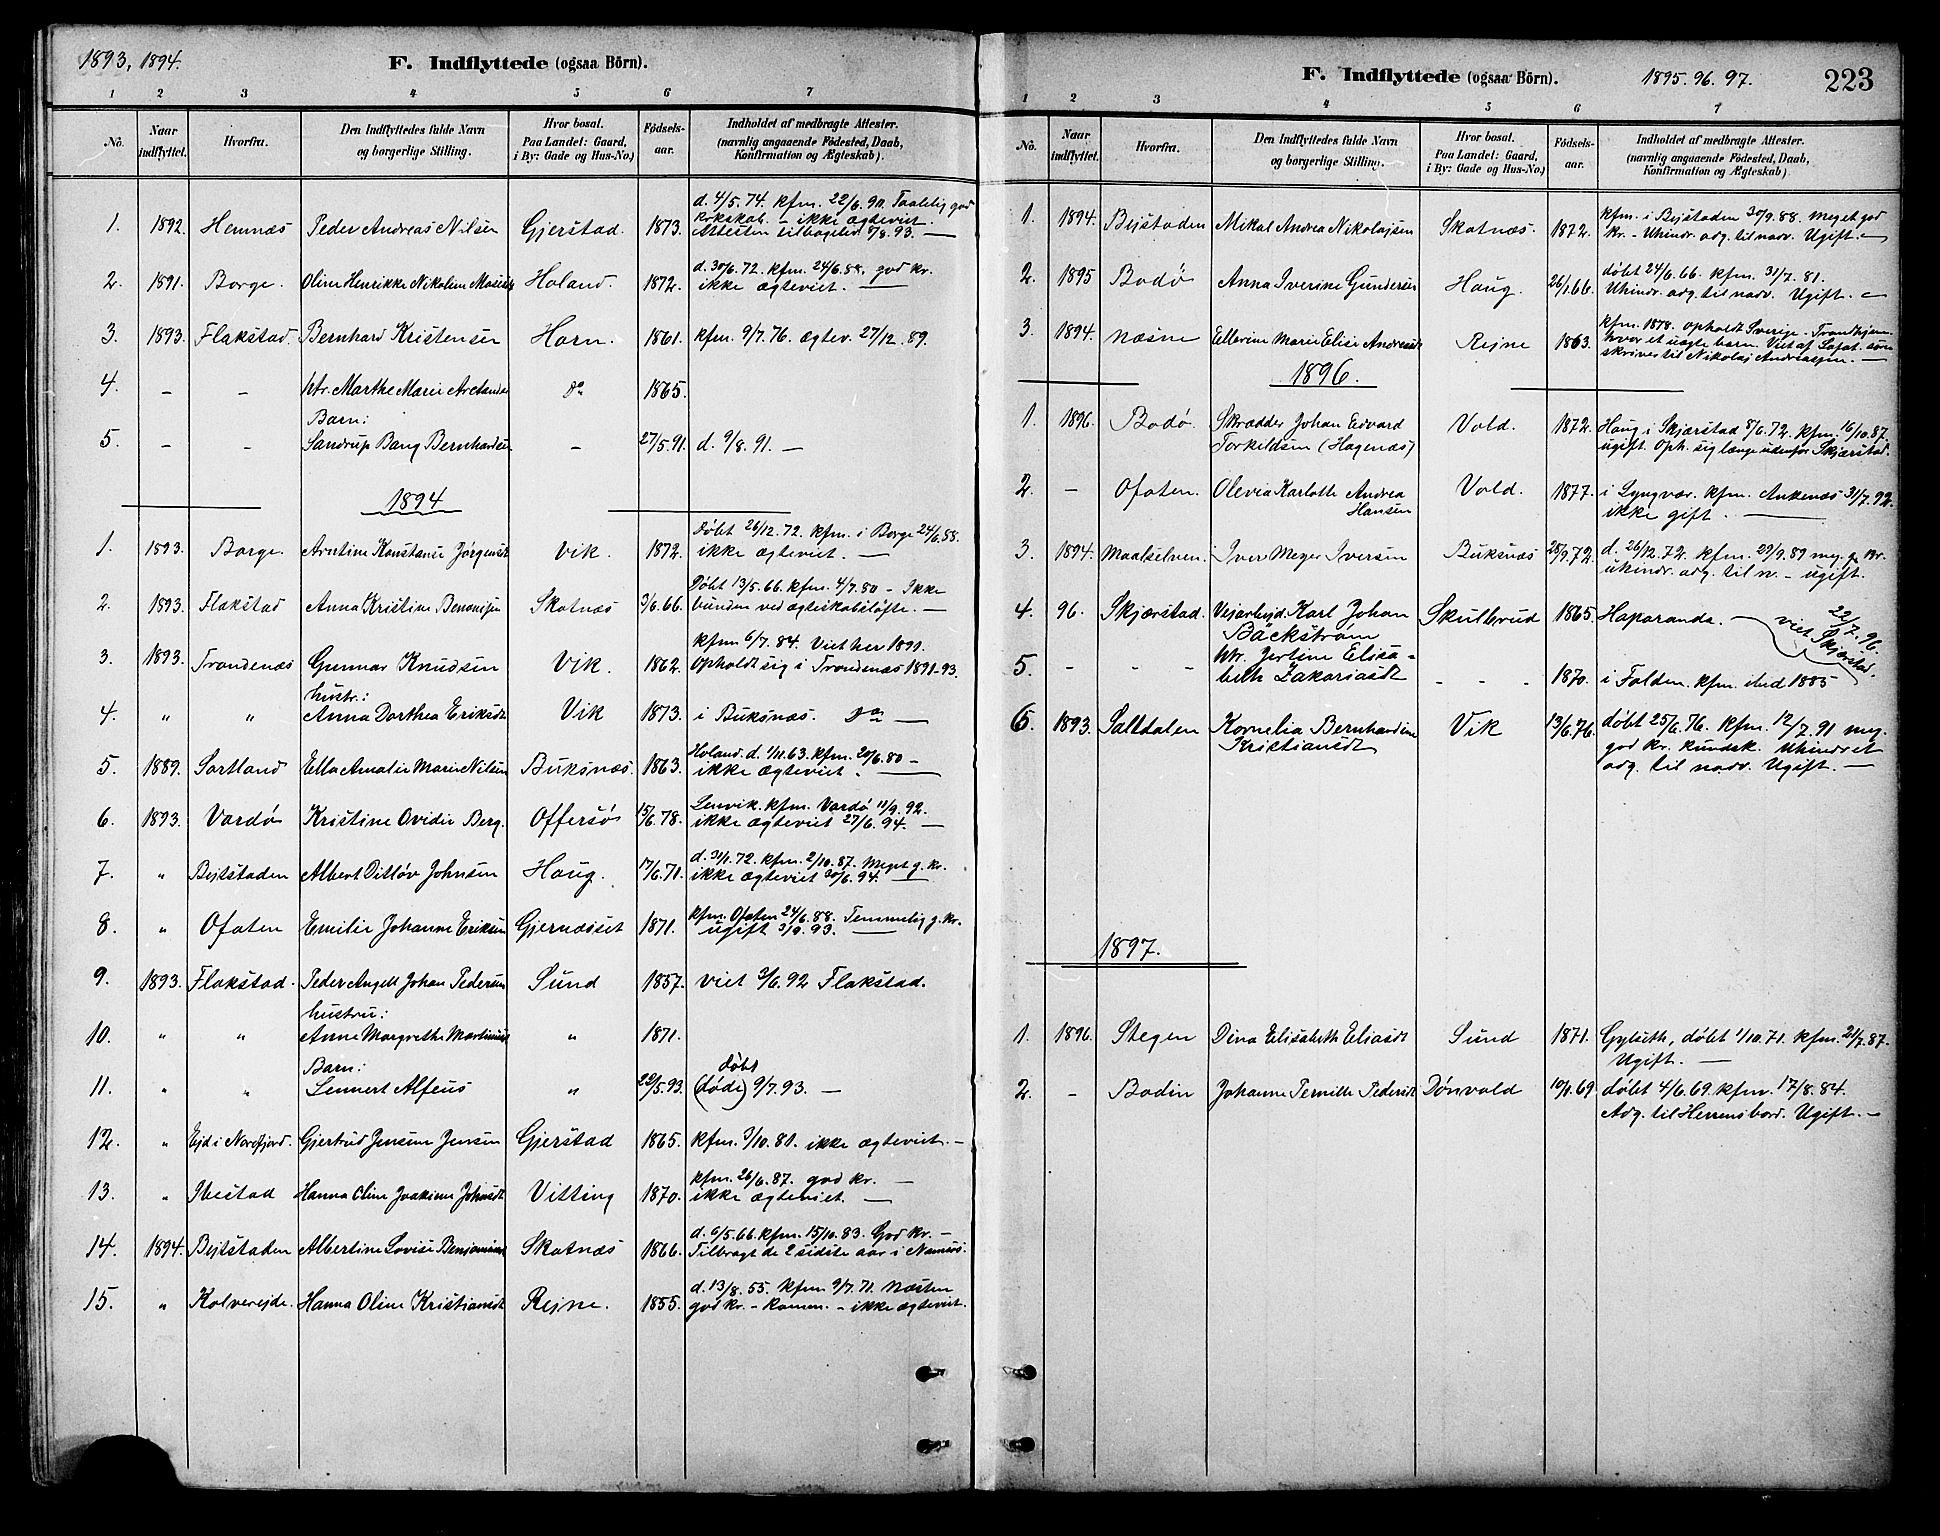 1893, 1894.
F. Indflyttede (ogsaa Börn).
1 2 3 4 5 6 7
No. Naar indflyttet. Hvorfra. Den Indflyttedes fulde Navn og borgerlige Stilling. Hvor bosat. Paa Landet: Gaard, i By: Gade og Hus-No.) Födsels-aar. Indholdet af medbragte Attester. (navnlig angaaende Födested, Daab, Konfirmation og Ægteskab).
1. 1892. Hemnæs Peder Andreas Nilsen Gjerstad. 1873. d. 4/5. 74. kfm. 22/6. 90. Taalelig god
krkskab. - ikke ægteviet.
Attesten tilbagelev. 8. 93. —
2. 1891. Borge. Oline Henrikke Nikoline Holand. 1872. d. 30/6. 72. kfm. 24/6. 88. god kr.
ikke ægteviet. —
3. 1893. Flakstad. Bernhard Kristensen Horn. 1861. kfm. 9/7. 76. ægtev. 27/12. 89.
4. - - htr. Marthe Marie Do 1865.
Barn:
5. - - Sandrup Bang Bernhardsen - 27/5. 91. d. 9/8. 91. —
1894
1. 1893. Borge Arntine Konstanse Jørgensdt Vik. 1872. Døbt 26/12. 72. kfm. i Borge 24/6. 88.
ikke ægteviet. —
2. 1893. Flakstad Anna Kristine Benonisen Skotnæs 3/6. 66. Døbt 13/5. 66. kfm. 4/7. 80 - Ikke
bunden ved ægteskabsløfte. —
3. 1893. Trondenæs Gunnar Knudsen Vik. 1862. kfm 6/7. 84. Viet her 1891.
opholdt sig i Trondenæs 1891-93.
hustr.:
4. " " Anna Dorthea Eriksdt Vik 1873. i Buksnæs. Do —
5. 1889. Sortland Ella Amalie Marie Nilsen Buksnæs. 1863. Holand. d. 1/11. 63. kfm. 20/6. 80 -
ikke ægteviet. —
6. 1893. Vardø Kristine Ovidie Berg. Offersø 15/6. 78. Lenvik. kfm. Vardø 11/9. 92.
ikke ægteviet 27/6. 94. —
7. " Bejtstaden Albert Ditløv Johnsen Haug. 17/6. 71. d. 31/1. 72. kfm. 2/10. 87. Meget g. kr.
ikke ægteviet 20/6. 94. —
8. " Ofoten Emilie Johanne Eriksen Gjernæsset 1871. kfm. Ofoten 24/6. 88. Temmelig g. kr.
ugift 3/9. 93. —
9. 1893. Flakstad. Peder Angell Johan Pedersen Sund 1857. viet 3/6. 92 Flakstad.
hustru:
10. " " Anne Margrethe " 1871.
Barn:
døbt
11. " " Lennert Alfeus " 22/5. 93. (døde) 9/7. 93. —
12. " Ejd i Nordfjord. Gjertrud Jensine Jensen Gjerstad 1865. kfm. 3/10. 80. ikke ægteviet. -
13. " Ibestad Hanna Oline Joakime Johnsdt Vitting 1870. kfm. 26/6. 87. god kr. —
ikke ægteviet. —
14. 1894. Bejtstaden Albertine Lovise Skotnæs 1866. d. 6/5. 66. kfm. 15/10. 83. God kr. -
Tilbragt de 2 sidste aar i Namsos.
15. " Kolverejde. Hanna Oline Kristiansdt Rejne. 1855. d. 13/8. 55. kfm. 9/7. 71. Næsten
god kr. - komm. - ikke ægteviet.
F. Indflyttede (ogsaa Börn). 1895. 96. 97. 223
1 2 3 4 5 6 7
No. Naar indflyttet. Hvorfra. Den Indflyttedes fulde Navn og borgerlige Stilling. Hvor bosat. Paa Landet: Gaard, i By: Gade og Hus-No.) Födsels-aar. Indholdet af medbragte Attester. (navnlig angaaende Födested, Daab, Konfirmation og Ægteskab).
1. 1894. Bejstaden Mikal Andrea Nikolajsen Skotnæs. 1872. kfm. i Bejstaden 30/9. 88. meget god
kr. - Uhindr. adg. til nadv. Ugift. —
2. 1895 Bodø Anna Iverine Gundersen Haug. 26/1. 66. døbt 24/6. 66. kfm. 31/7. 81.
Uhindr. adg. til nadv. Ugift. —
3. 1894. Næsne Ellerine Marie Elise Rejne 1863. kfm. 1878. opholdt Sverige - Trondhjem
hvor et uægte barn. Viet af som
skrives til Nikolaj Andreassen. —
1896.
1. 1896. Bodø. Skrædder Johan Edvard Vold. 1872. Haug i Skjærstad 8/6. 72. kfm. 16/10. 87.
Torkildsen (Hagenæs) ugift. Oph. sig længe udenfor Skjærstad.
2. - Ofoten. Olevia Karlotte Andrea Vold. 1877. i Lyngvær. kfm. Ankenæs 31/7. 92.
Hansen ikke gift. —
3. 1894. Maalselven. Iver Meyer Iversen Buksnæs 25/9. 72. d. 26/12. 72. kfm. 29/9. 89 meg. g. kr.
uhindr. adg. til n. - ugift.
4. 96. Skjærstad. Vejarbejd. Karl Johan Skulbrud 1865. Haparanda. — viet 22/7. 96. Skjærstad.
Bäckström
5. - - - htr. Jertine Elisa-
beth Zakariasdt - - - 1870. i Folden. kfm. ibid 1885
6. 1893. Saltdalen Kornelia Bernhardine Vik 13/6. 76. døbt 25/6. 76. kfm. 12/7. 91 meg.
Kristiansdt god kr. kundsk. Uhindret
adg. til nadv. Ugift. —
1897.
1. 1896. Stegen Dina Elisabeth Eliasdt Sund 1871. døbt 1/10. 71. kfm. 21/7. 87.
Ugift. —
2. - Bodin Johanne Pernille Pedersdt Dønvold 10/1. 69 døbt 4/6. 69. kfm. 17/8. 84.
Adg. til Herrens bord. Ugift. —